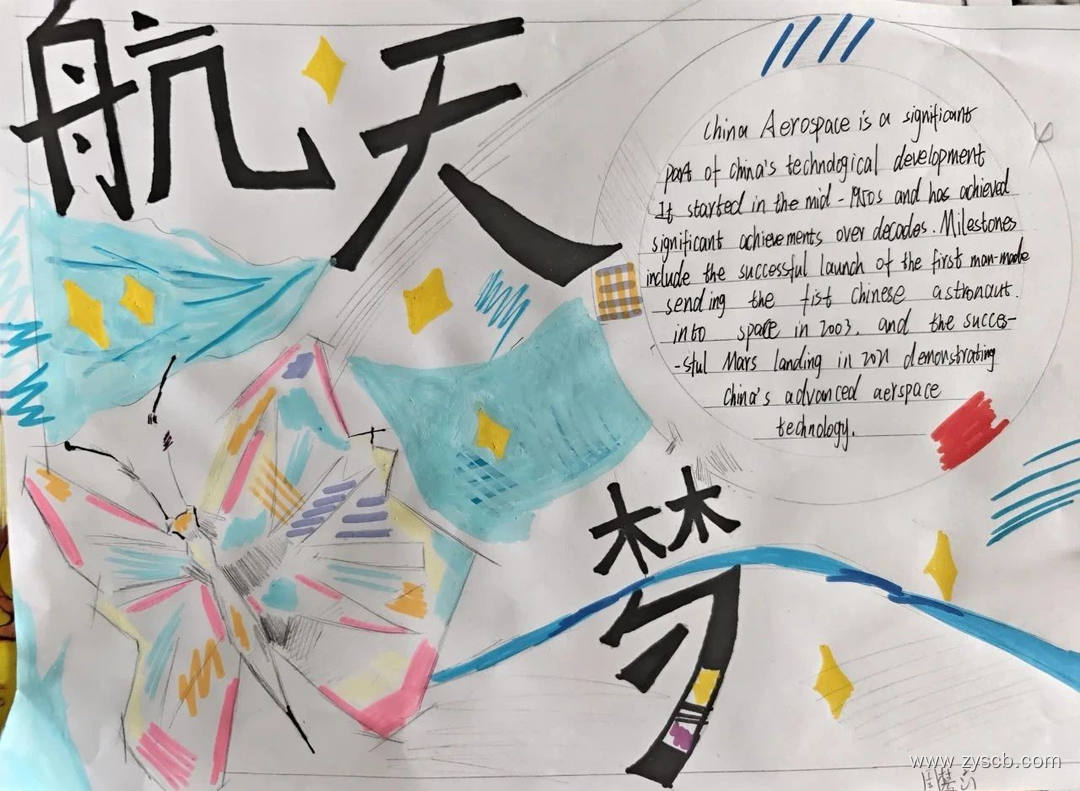 航天
梦
China Aerospace is a significant
part of China's technological development
It started in the mid-1950s and has achieved
significant achievements over decades. Milestones
include the successful launch of the first man-made
sending the fist Chinese astronaut.
into space in 2003. and the succes-
-sful Mars landing in 2021 demonstrating
China's advanced aerspace
technology.
www.zyscb.com